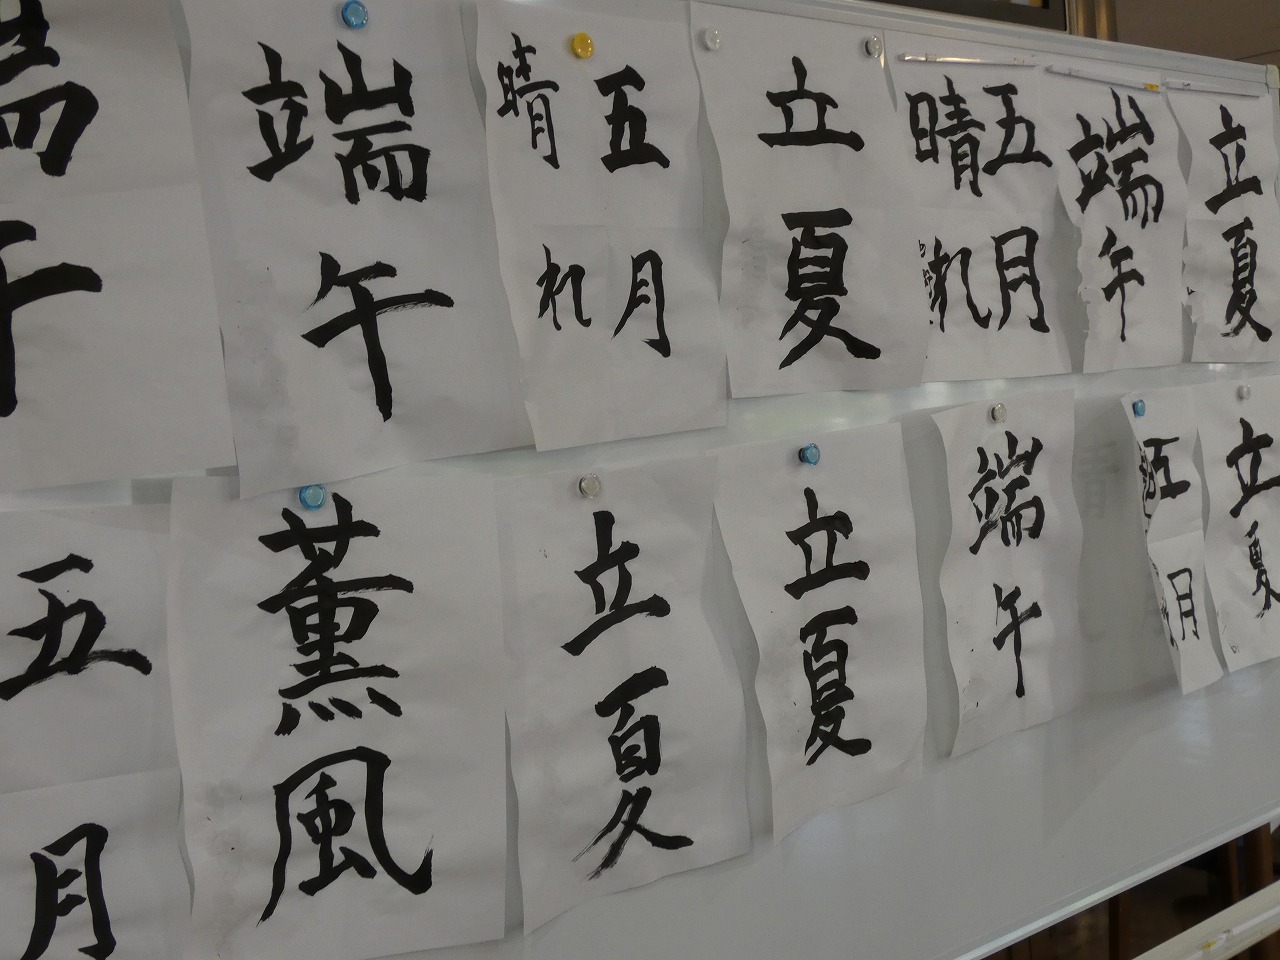 端午
端午
五月
晴れ
立夏
五月
晴れ
端午
立夏
五月
薫風
立夏
立夏
端午
五月
立夏